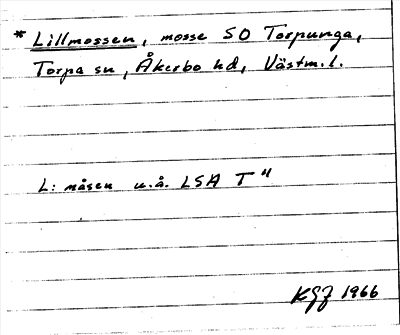 * Lillmossen, mosse SO Torpunga,
Torpa sn, Åkerbo hd, Västm. l.
L: måsen u.å. LSA T"
KGJ 1966